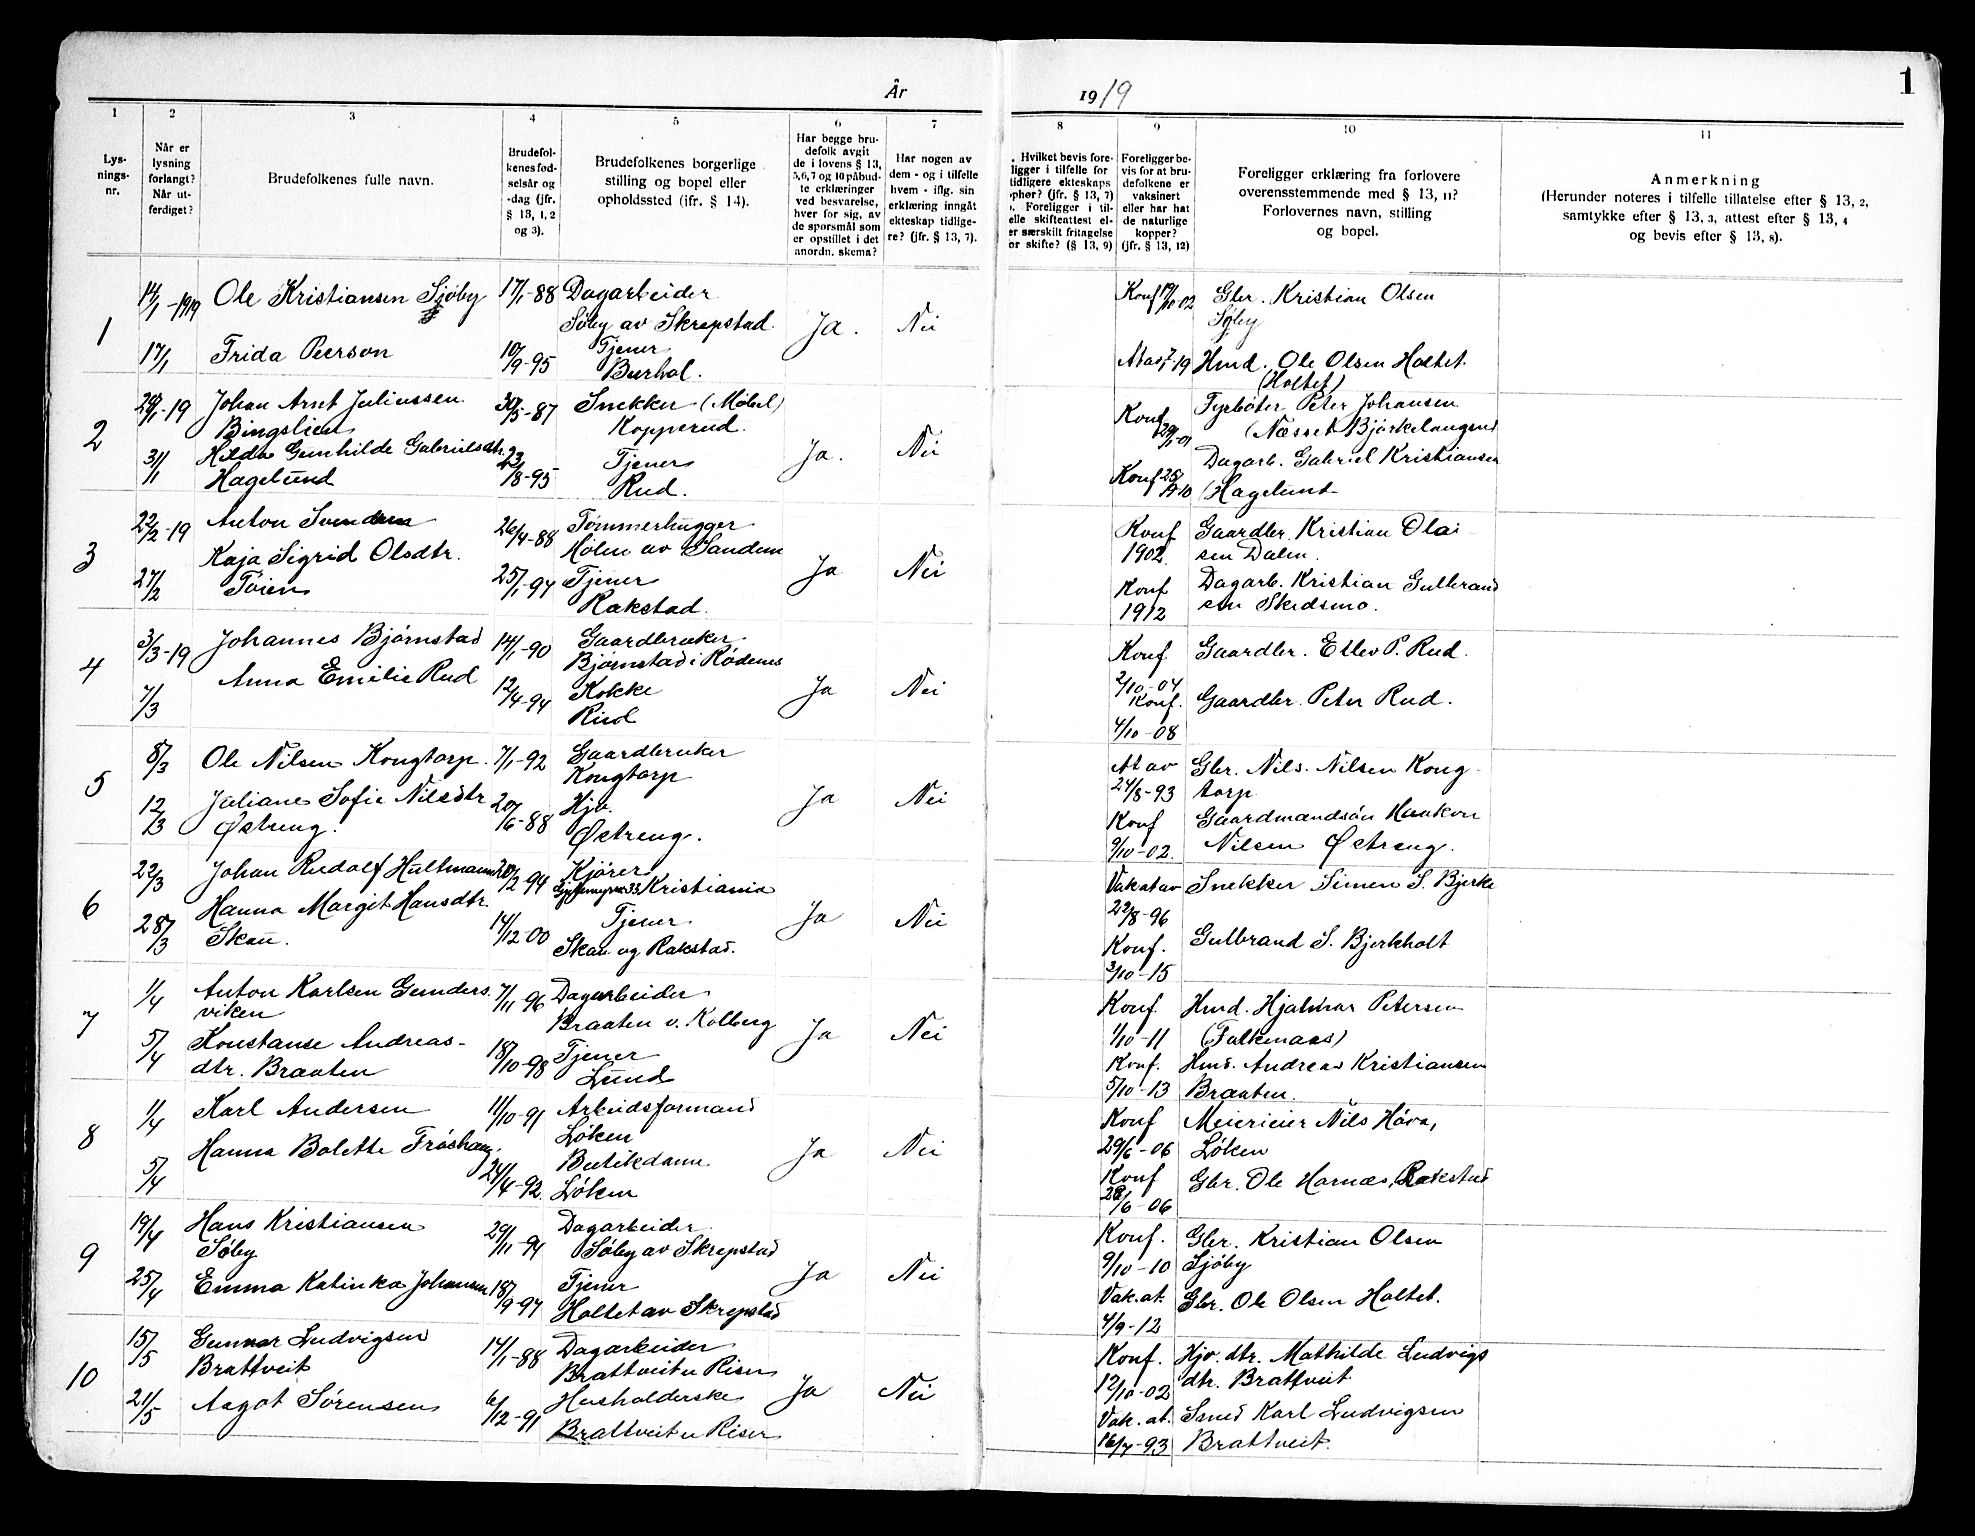 1
År
19 19
1
2
3
4
5
6
7
8
9
10
11
Lys-
nings-
nr.
Når er
lysning
forlangt?
Når ut-
ferdiget?
Brudefolkenes fulle navn.
Brudefol-
kenes fød-
selsår og
-dag (jfr.
§ 13, 1, 2
og 3).
Brudefolkenes borgerlige
stilling og bopel eller
opholdssted (ifr. § 14).
Har begge bru-
defolk avgit
de i lovens § 13,
5,6,7 og 10 påbud-
te erklæringer
ved besvarelse,
hver for sig, av
de spørsmål som
er opstillet i det
anordn. skema?
Har nogen av
dem - og i tilfelle
hvem - iflg. sin
erklæring inngåt
ekteskap tidlige-
re? (jfr. § 13, 7).
. Hvilket bevis fore-
ligger i tilfelle for
tidligere ekteskaps
ophør? (jfr. § 13, 7)
. Foreligger i til-
elle skifteattest el-
er særskilt fritagelse
or skifte? (§ 13, 9)
Foreligger be-
vis for at bru-
defolkene er
vaksinert
eller har hat
de naturlige
kopper?
(jfr. § 13, 12)
Foreligger erklæring fra forlovere
overensstemmende med § 13, 11?
Forlovernes navn, stilling
og bopel.
Anmerkning
(Herunder noteres i tilfelle tillatelse efter § 13, 2,
samtykke efter § 13, 3, attest efter § 13, 4
og bevis efter § 13, 8).
1
14/1-1919 Ole Kristiansen Sjøby 17/1-88 Dagarbeider Konf 19/10-02 Gbr. Kristian Olsen
Søby av Skrepstad. Ja. Nei Søby
17/1 Frida Peerson 10/9-95 Tjener 19 Hmd. Ole Olsen Holtet.
Burhol. (Holtet)
2
28/1-19 Johan Arnt Juliussen 30/5-87 Snekker (Møbel) Konf Fyrbøter Peter Johansen
Bingslien Kopperud. 29/1-01 (Næsset Bjørkelangen
31/1 Hilda Gunhilde Gabrielsdtr. 23/8-95 Tjener Ja. Nei Dagarb. Gabriel Kristiansen
Hagelund Rud. Konf 25/9-10 (Hagelund
3
22/2-19 Anton Svendsen 26/4-88 Tømmerhugger Konf Gaardbr. Kristian Olai
Kaja Sigrid Olsdtr. Holen av Sandem Ja Nei 1902. sen Dalen.
27/2 Tøien 25/1-94 Tjener Konf Dagarb. Kristian Gulbrand
Rakstad. 1912 sen Skedsmo.
4
3/3-19 Johannes Bjørnstad 14/1-90 Gaardbruker Konf Gaardbr. Etlev P. Rud.
Bjørnstad i Rødenes 2/10-04
7/3 Anna Emilie Rud 12/4-94 Kokke Ja Nei Konf. Gaardbr. Peter Rud.
Rud 4/10-08
5
8/3 Ole Nilsen Kongtorp. 7/1-92 Gaardbruker At av Gbr. Nils Nilsen Kong-
Kongtorp 24/8-93 torp
12/3 Juliane Sofie Nilsdtr 20/6-88 Hjv. Ja Nei Konf Gaardmandsøn Haakon
Østreng. Østreng. 9/10-02. Nilsen Østreng.
6
22/3 Johan Rudolf Hultmann 20/2-94 Kjører Vak at av Snekker Simen S. Bjerke
33 Kristiania 22/8-96
28/3 Hanna Margit Hansdtr. 14/12-00 Tjener Ja Nei Konf. Gulbrand S. Bjerkholt
Skau. Skau og Rakstad. 3/10-15
7
1/4 Anton Karlsen Gunders 7/11 96 Dagarbeider Konf. Hmd. Hjalmar Petersen
viken Braaten v. Kolberg Ja Nei 1/10-11 (Falkenaas)
5/4 Konstanse Andreas- 18/10-98 Tjener Konf. Hmd. Andreas Kristiansen
dtr. Braaten Lund 5/10-13 Braaten.
8
1/4 Karl Andersen 11/10-91 Arbeidsformand Konf Meierieier Nils Høva,
Løken 29/6-06 Løken
5/4 Hanna Bolette Frøshaug. 24/4-92. Butikdame. Ja Nei Konf Gbr. Ole Harnæs, Rakstad
Løken 28/6-06
9
19/4 Hans Kristiansen 29/11-94 Dagarbeider Konf. Gbr. Kristian Olsen
Søby Søby av Skrepstad 9/10-10 Sjøby
25/4 Emma Katinka Johansen 18/9-97 Tjener Ja Nei Vak. at. Gbr. Ole Olsen Holtet.
Holtet av Skrepstad 4/9-12
10
15/5 Gunnar Ludvigsen 14/1-88 Dagarbeider Konf. Hjv. dtr. Mathilde Ludvigs
Brattveit Brattveit u Riser 12/10-02 dtr. Brattveit
21/5 Aagot Sørensen 6/12-91 Husholderske Ja Nei Vak. at. Smed Karl Ludvigsen
Brattveit u Riser 16/7-93 Brattveit.